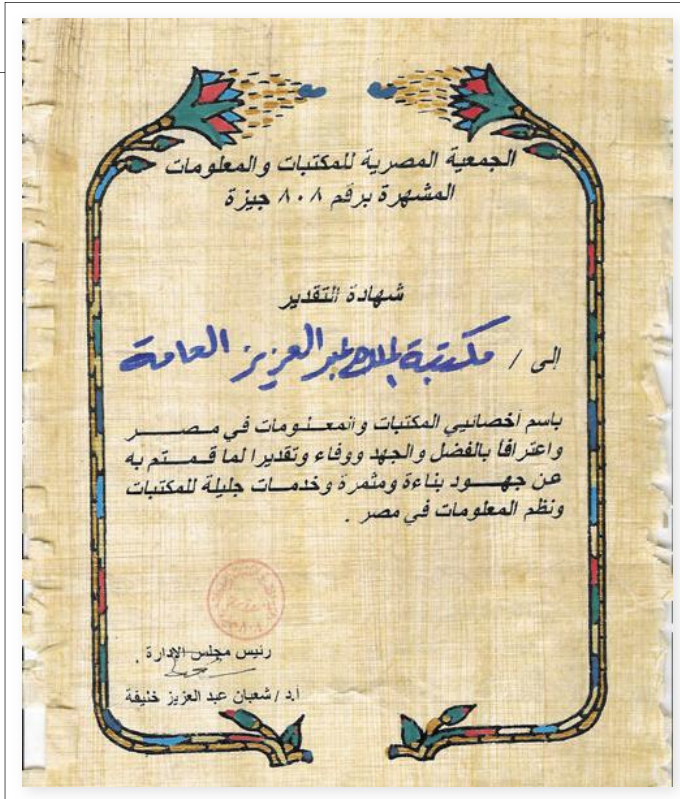 الجمعية المصرية للمكتبات والمعلومات
المشهرة برقم ٨٠٨ جيزة
شهادة التقدير
إلى / مكتبة الملك عبد العزيز العامة
باسم أخصائيي المكتبات والمعلومات في مصر
واعترافاً بالفضل والجهد ووفاء وتقديرا لما قمتم به
عن جهود بناءة ومثمرة وخدمات جليلة للمكتبات
ونظم المعلومات في مصر .
رئيس مجلس الإدارة .
أ.د / شعبان عبد العزيز خليفة